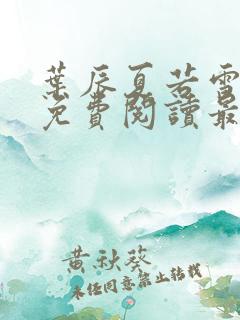 葉辰夏若雪
免費閱讀最
黃秋葵
未經同意禁止轉載